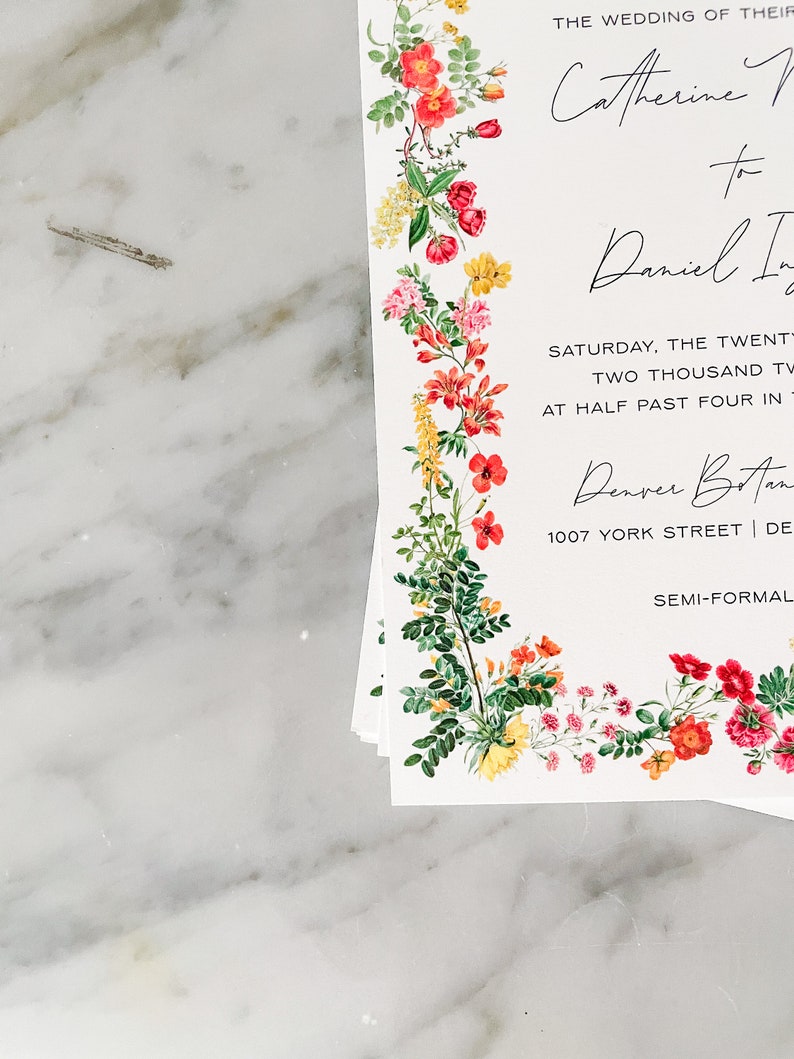 THE WEDDING OF THEIR
Catherine
to
Daniel
SATURDAY, THE TWENTY
TWO THOUSAND
AT HALF PAST FOUR IN
Denver
1007 YORK STREET |
SEMI-FORMAL